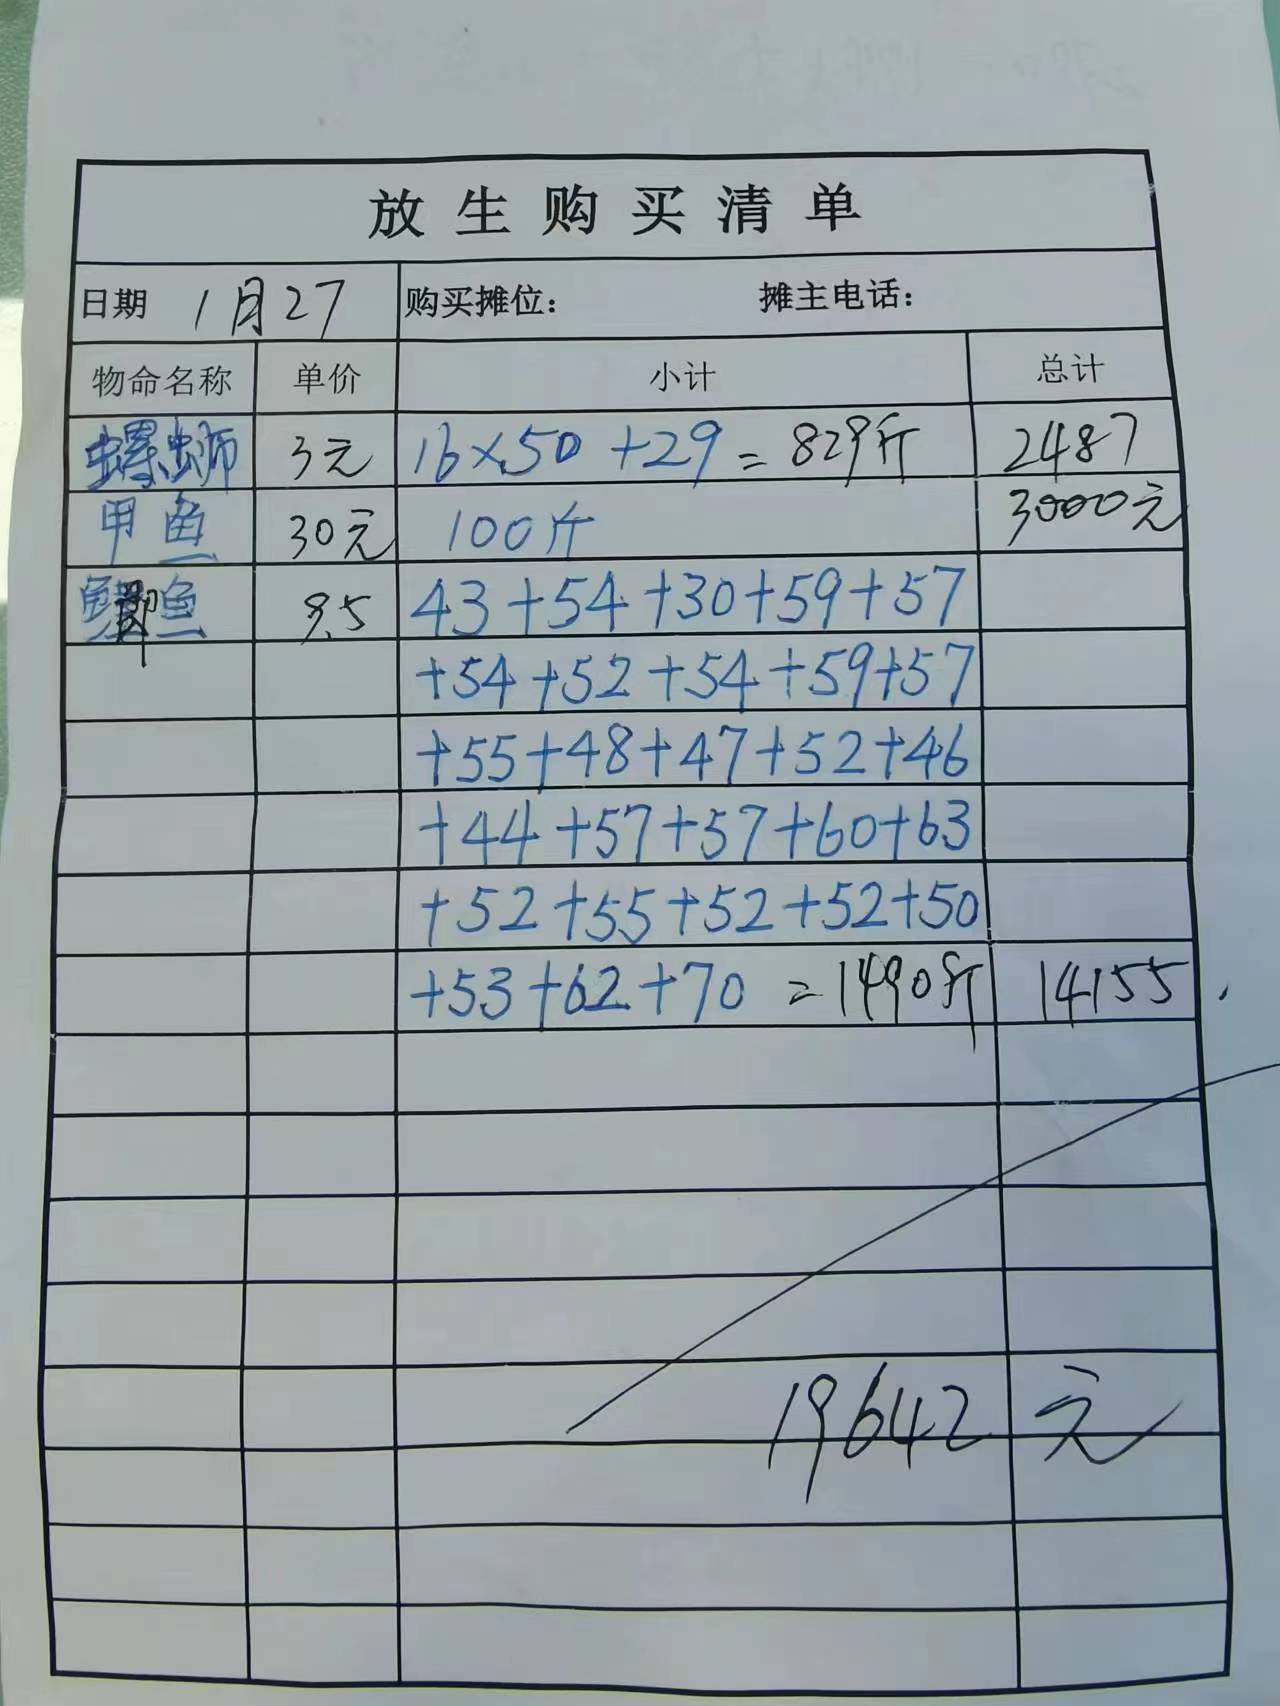 放生购买清单
日期 1月27 购买摊位： 摊主电话：
物命名称 单价 小计 总计
螺蛳 3元 16×50+29=829斤 2487
甲鱼 30元 100斤 3000元
鲫鱼 9.5 43+54+30+59+57
+54+52+54+59+57
+55+48+47+52+46
+44+57+57+60+63
+52+55+52+52+50
+53+62+70 =1490斤 14155
19642元